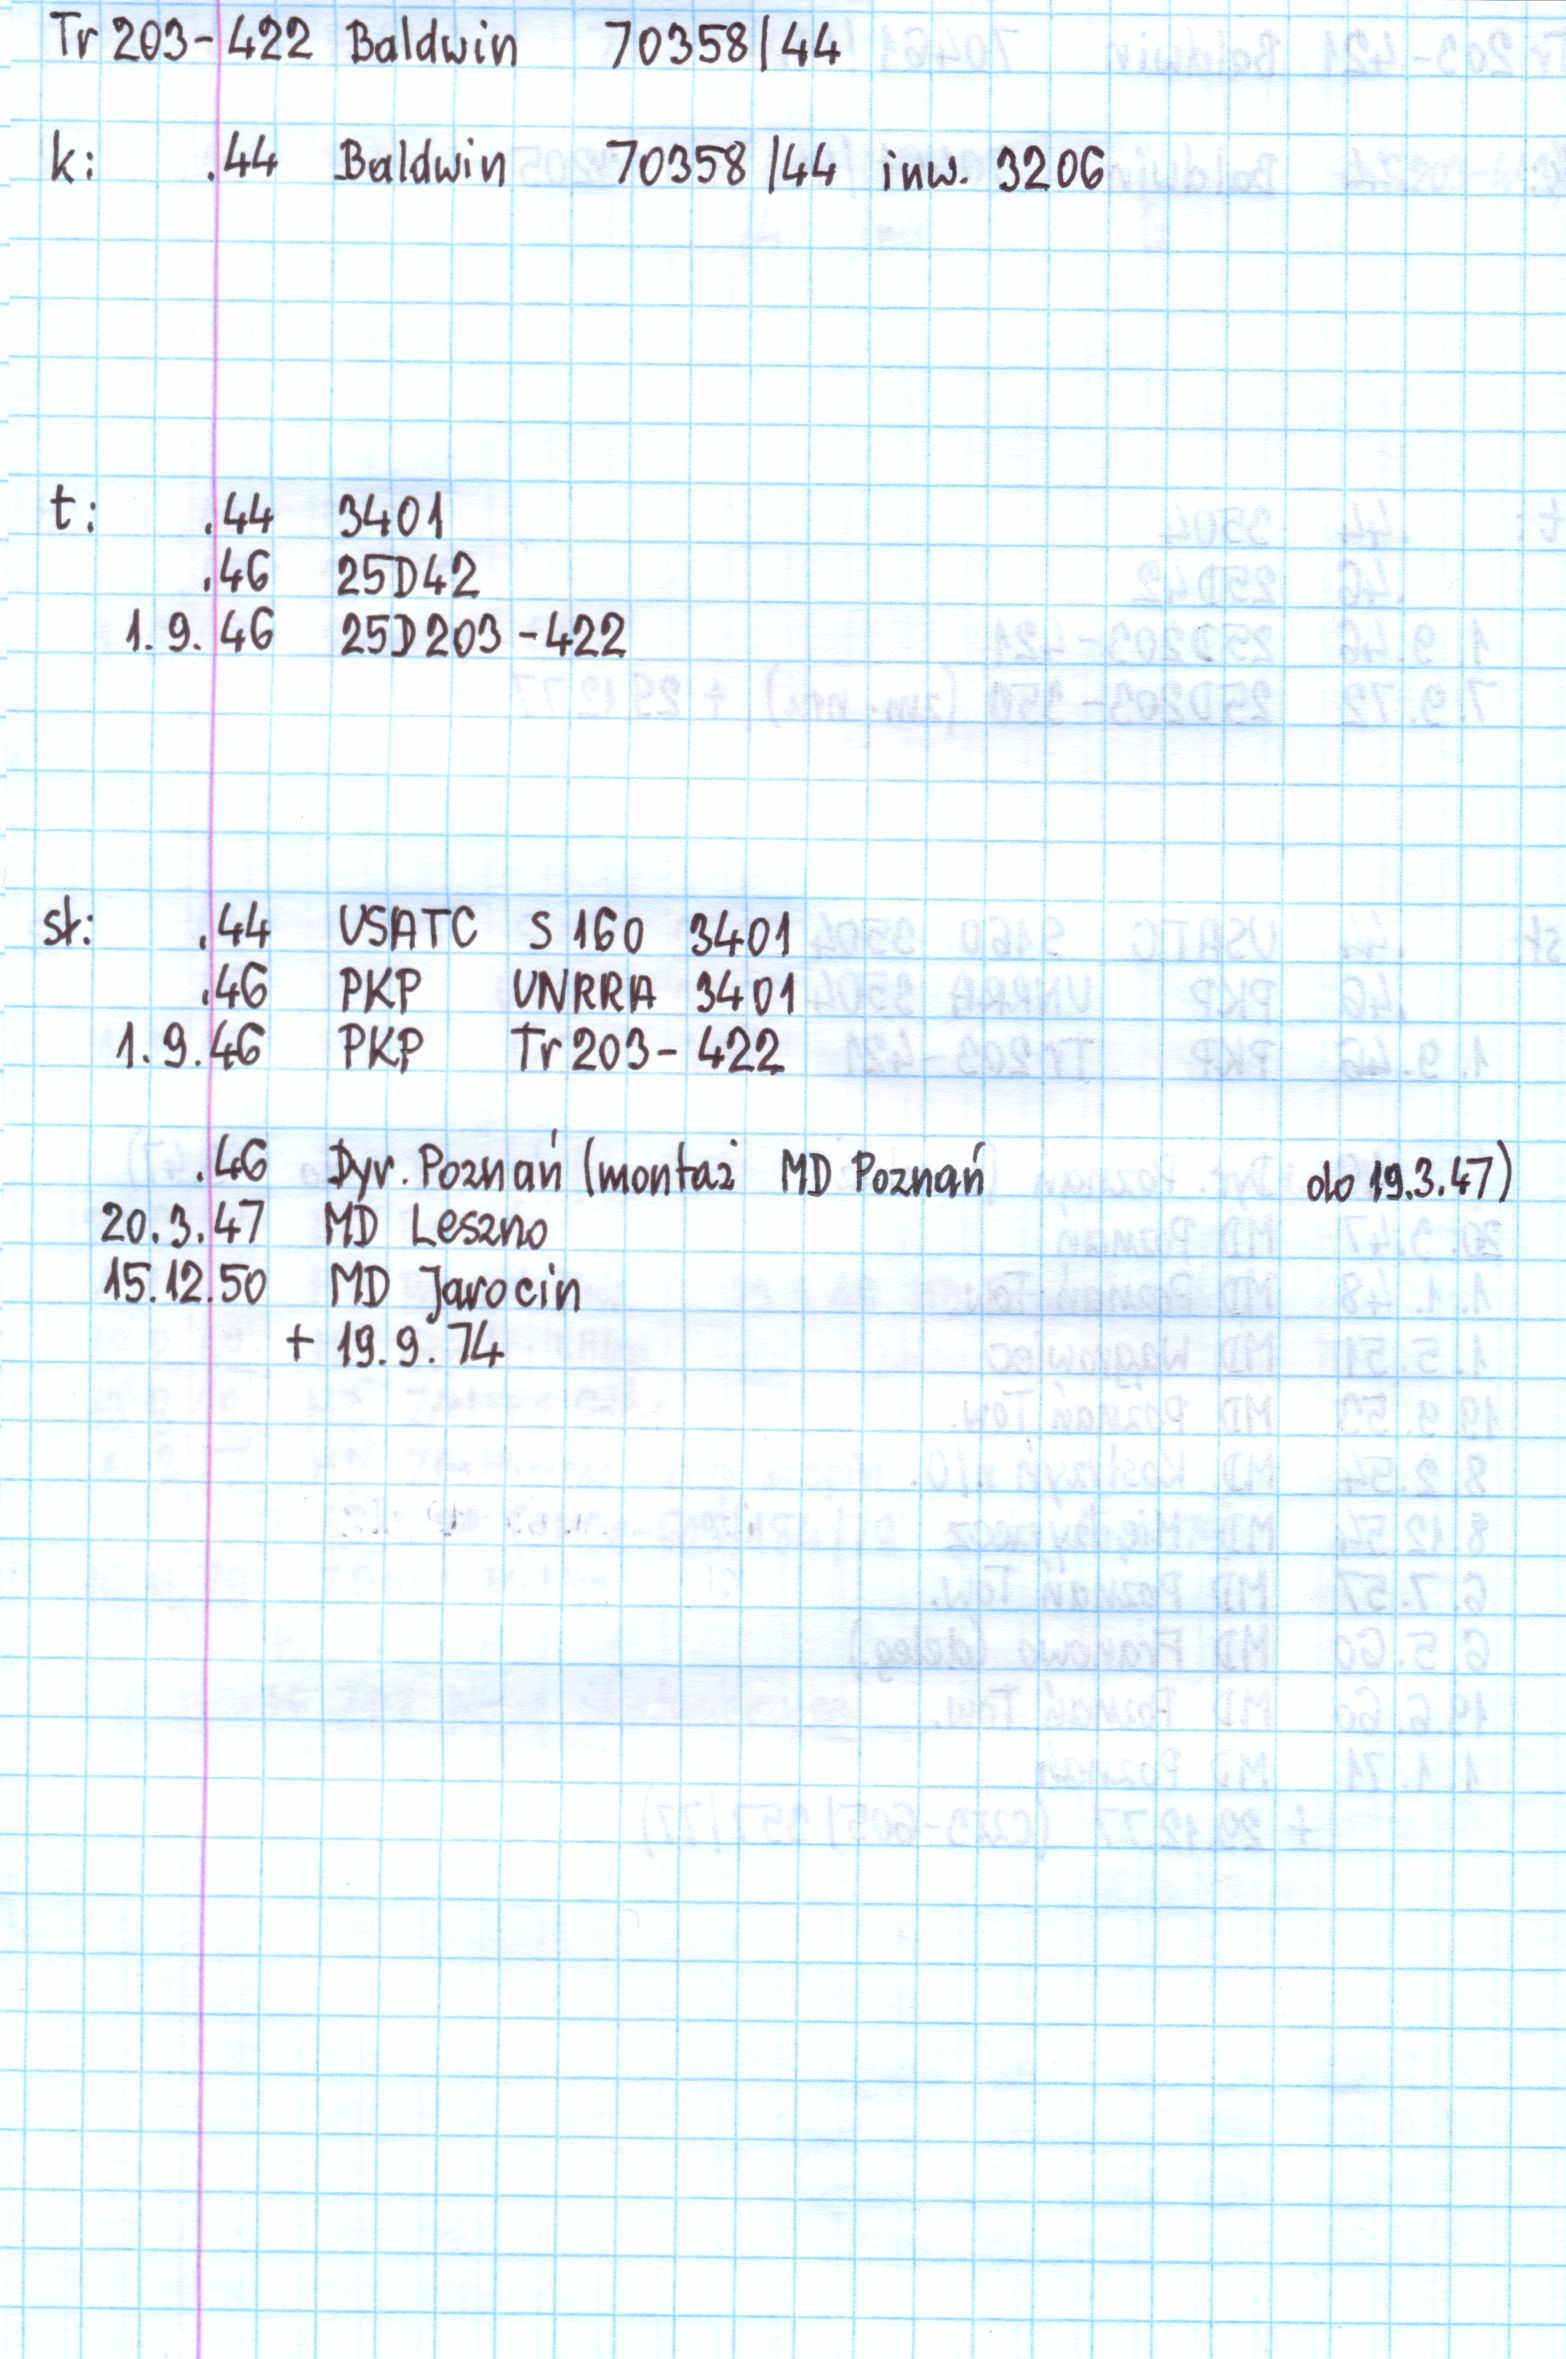 Tr 203-422 Baldwin 70358/44
k: .44 Baldwin 70358/44 inw. 3206
t: .44 3401
.46 25D42
1.9.46 25D203-422
st: .44 USATC S160 3401
.46 PKP UNRRA 3401
1.9.46 PKP Tr203-422
.46 Dyr. Poznań (montaż MD Poznań do 19.3.47)
20.3.47 MD Leszno
15.12.50 MD Jarocin
+ 19.9.74